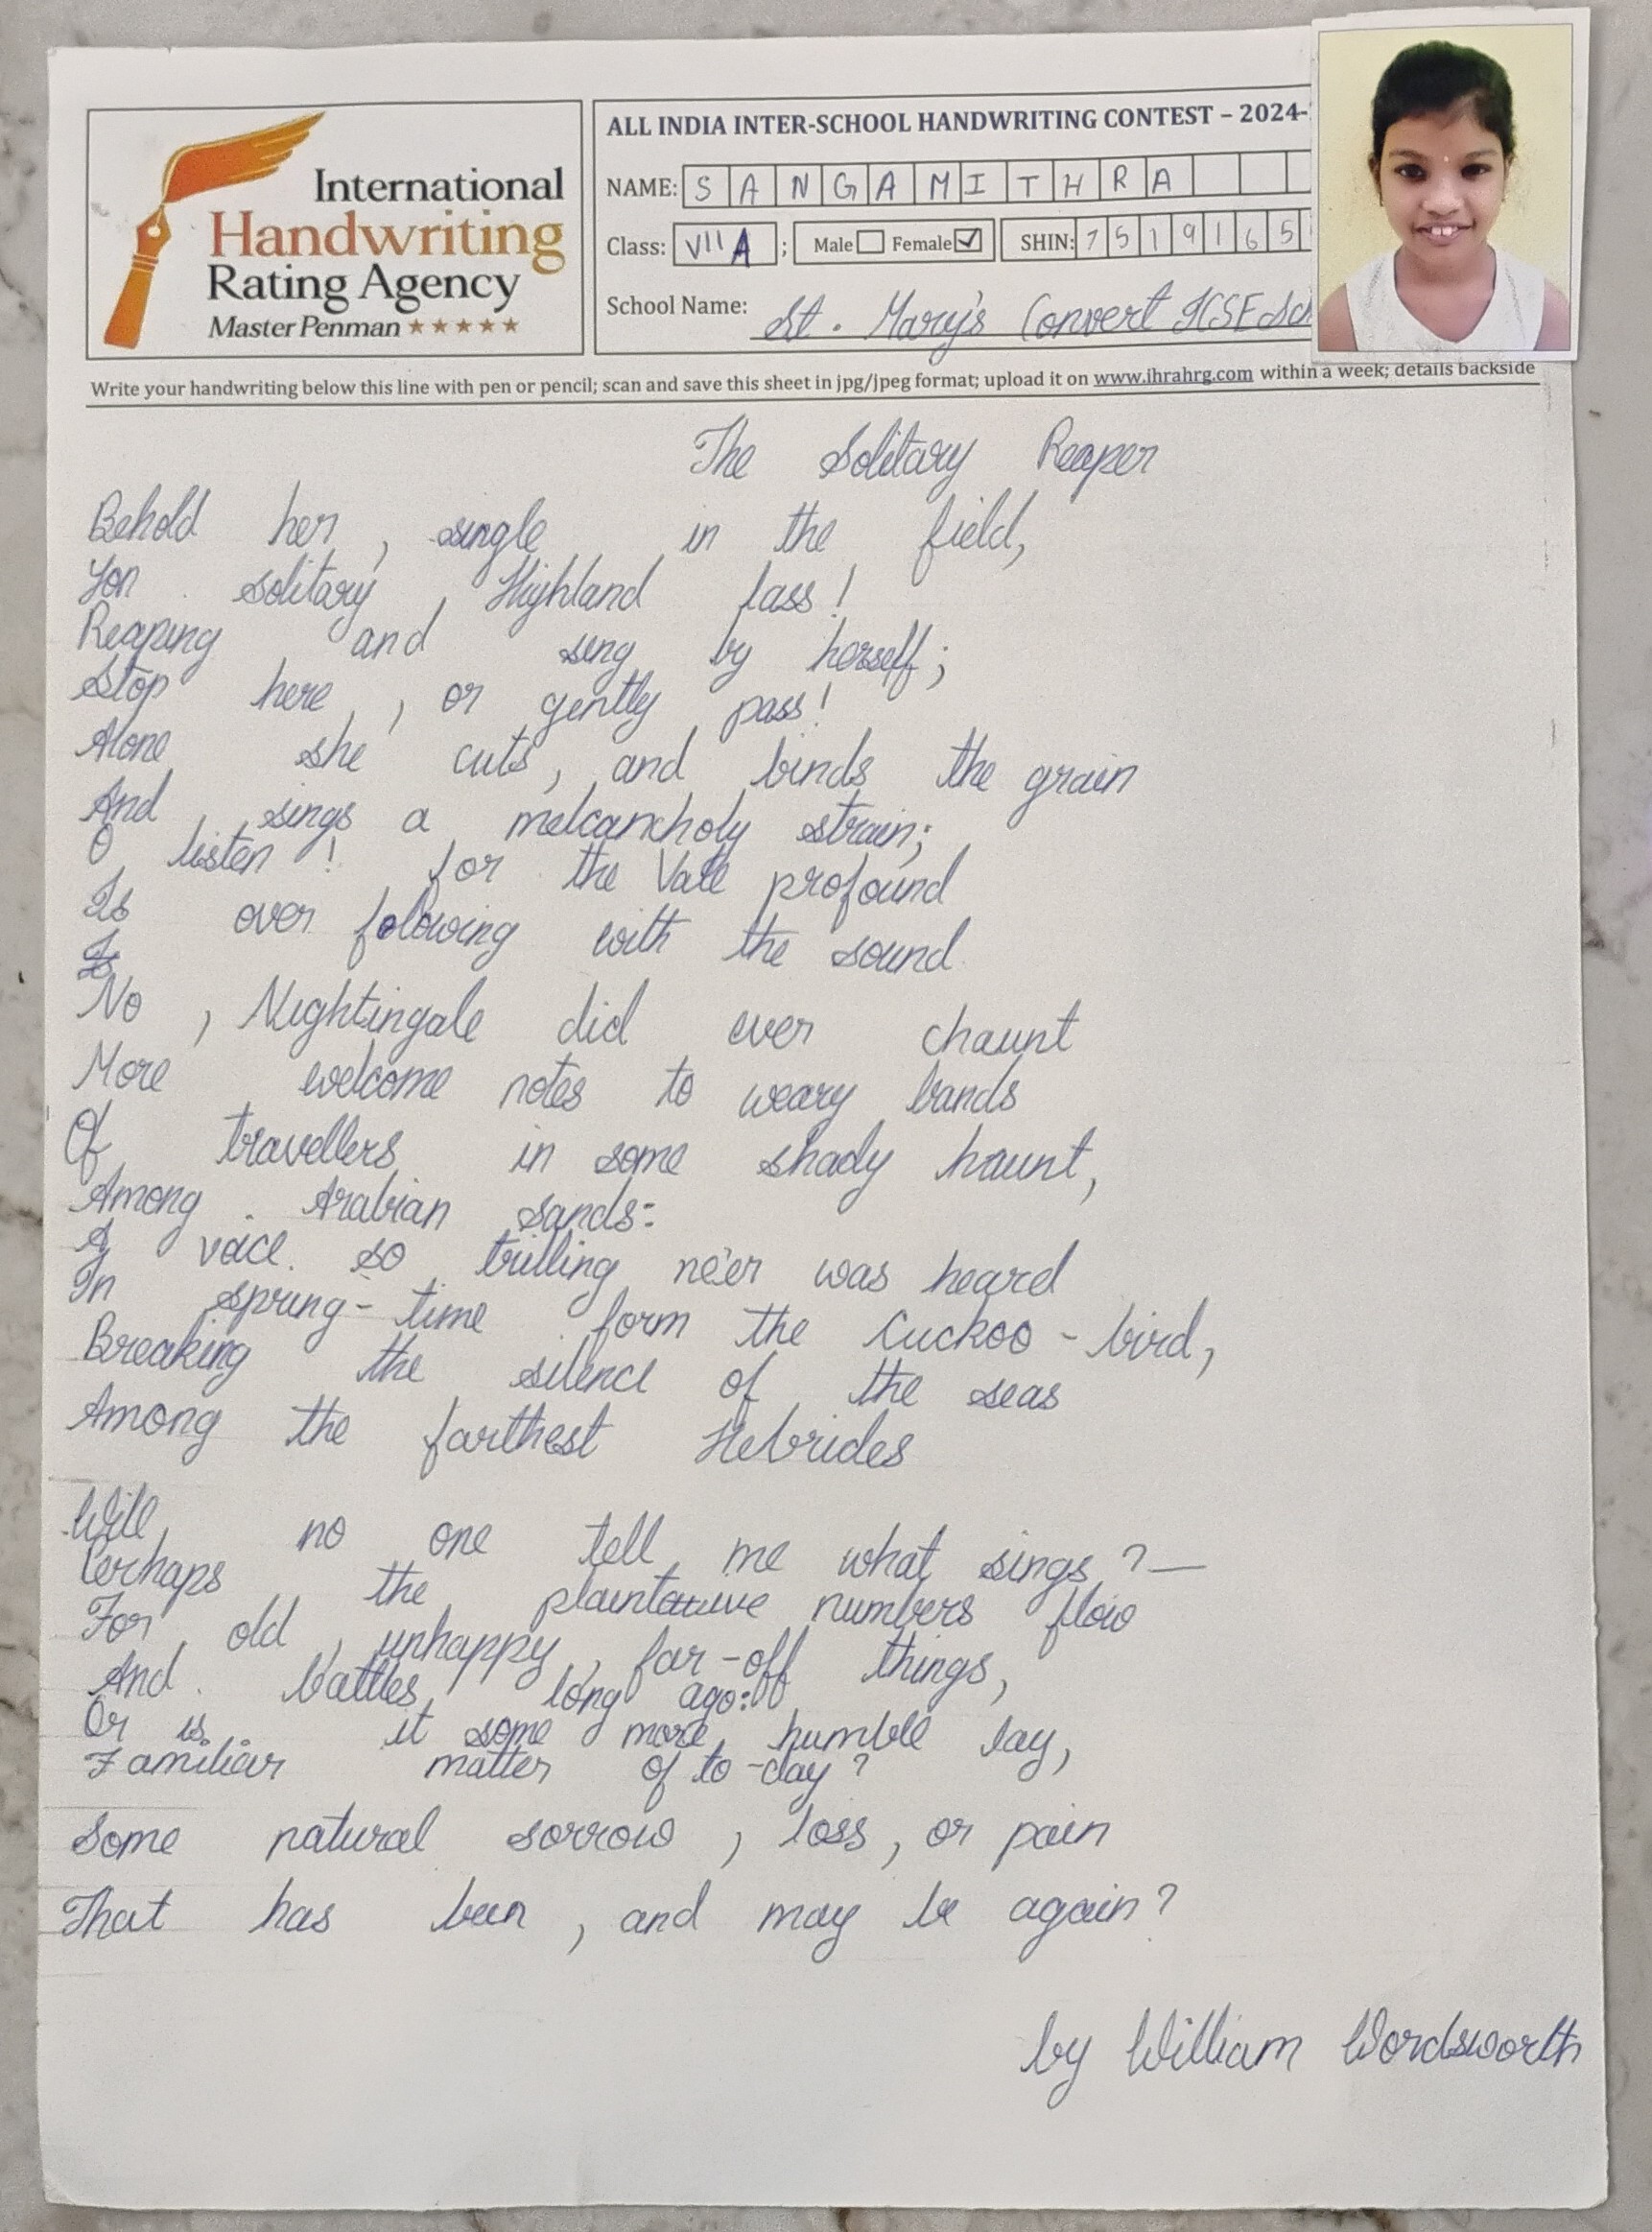 International
Handwriting
Rating Agency
Master Penman ★★★★★
ALL INDIA INTER-SCHOOL HANDWRITING CONTEST – 2024-
NAME: SANGAMITHRA
Class: VII A ; Male Female ✓ SHIN: 7519165
School Name: St. Mary's Convert ICSE Sch
Write your handwriting below this line with pen or pencil; scan and save this sheet in jpg/jpeg format; upload it on www.ihrahrg.com within a week; details backside
The Solitary Reaper
Behold her, single in the field,
Yon solitary Highland lass!
Reaping and sing by herself;
Stop here, or gently pass!
Alone she cuts, and binds the grain
And sings a melcancholy strain;
O listen! for the Vale profound
Is over folowing with the sound
No, Nightingale did ever chaunt
More welcome notes to weary bands
Of travellers in some shady haunt,
Among Arabian sands:
A voice so trilling ne'er was heard
In spring-time form the Cuckoo-bird,
Breaking the silence of the seas
Among the farthest Hebrides
Will no one tell me what sings?—
Perhaps the numbers flow
For old, unhappy, far-off things,
And battles long ago:
Or is it some more humble lay,
Familiar matter of to-day?
Some natural sorrow, loss, or pain
That has been, and may be again?
by William Wordsworth